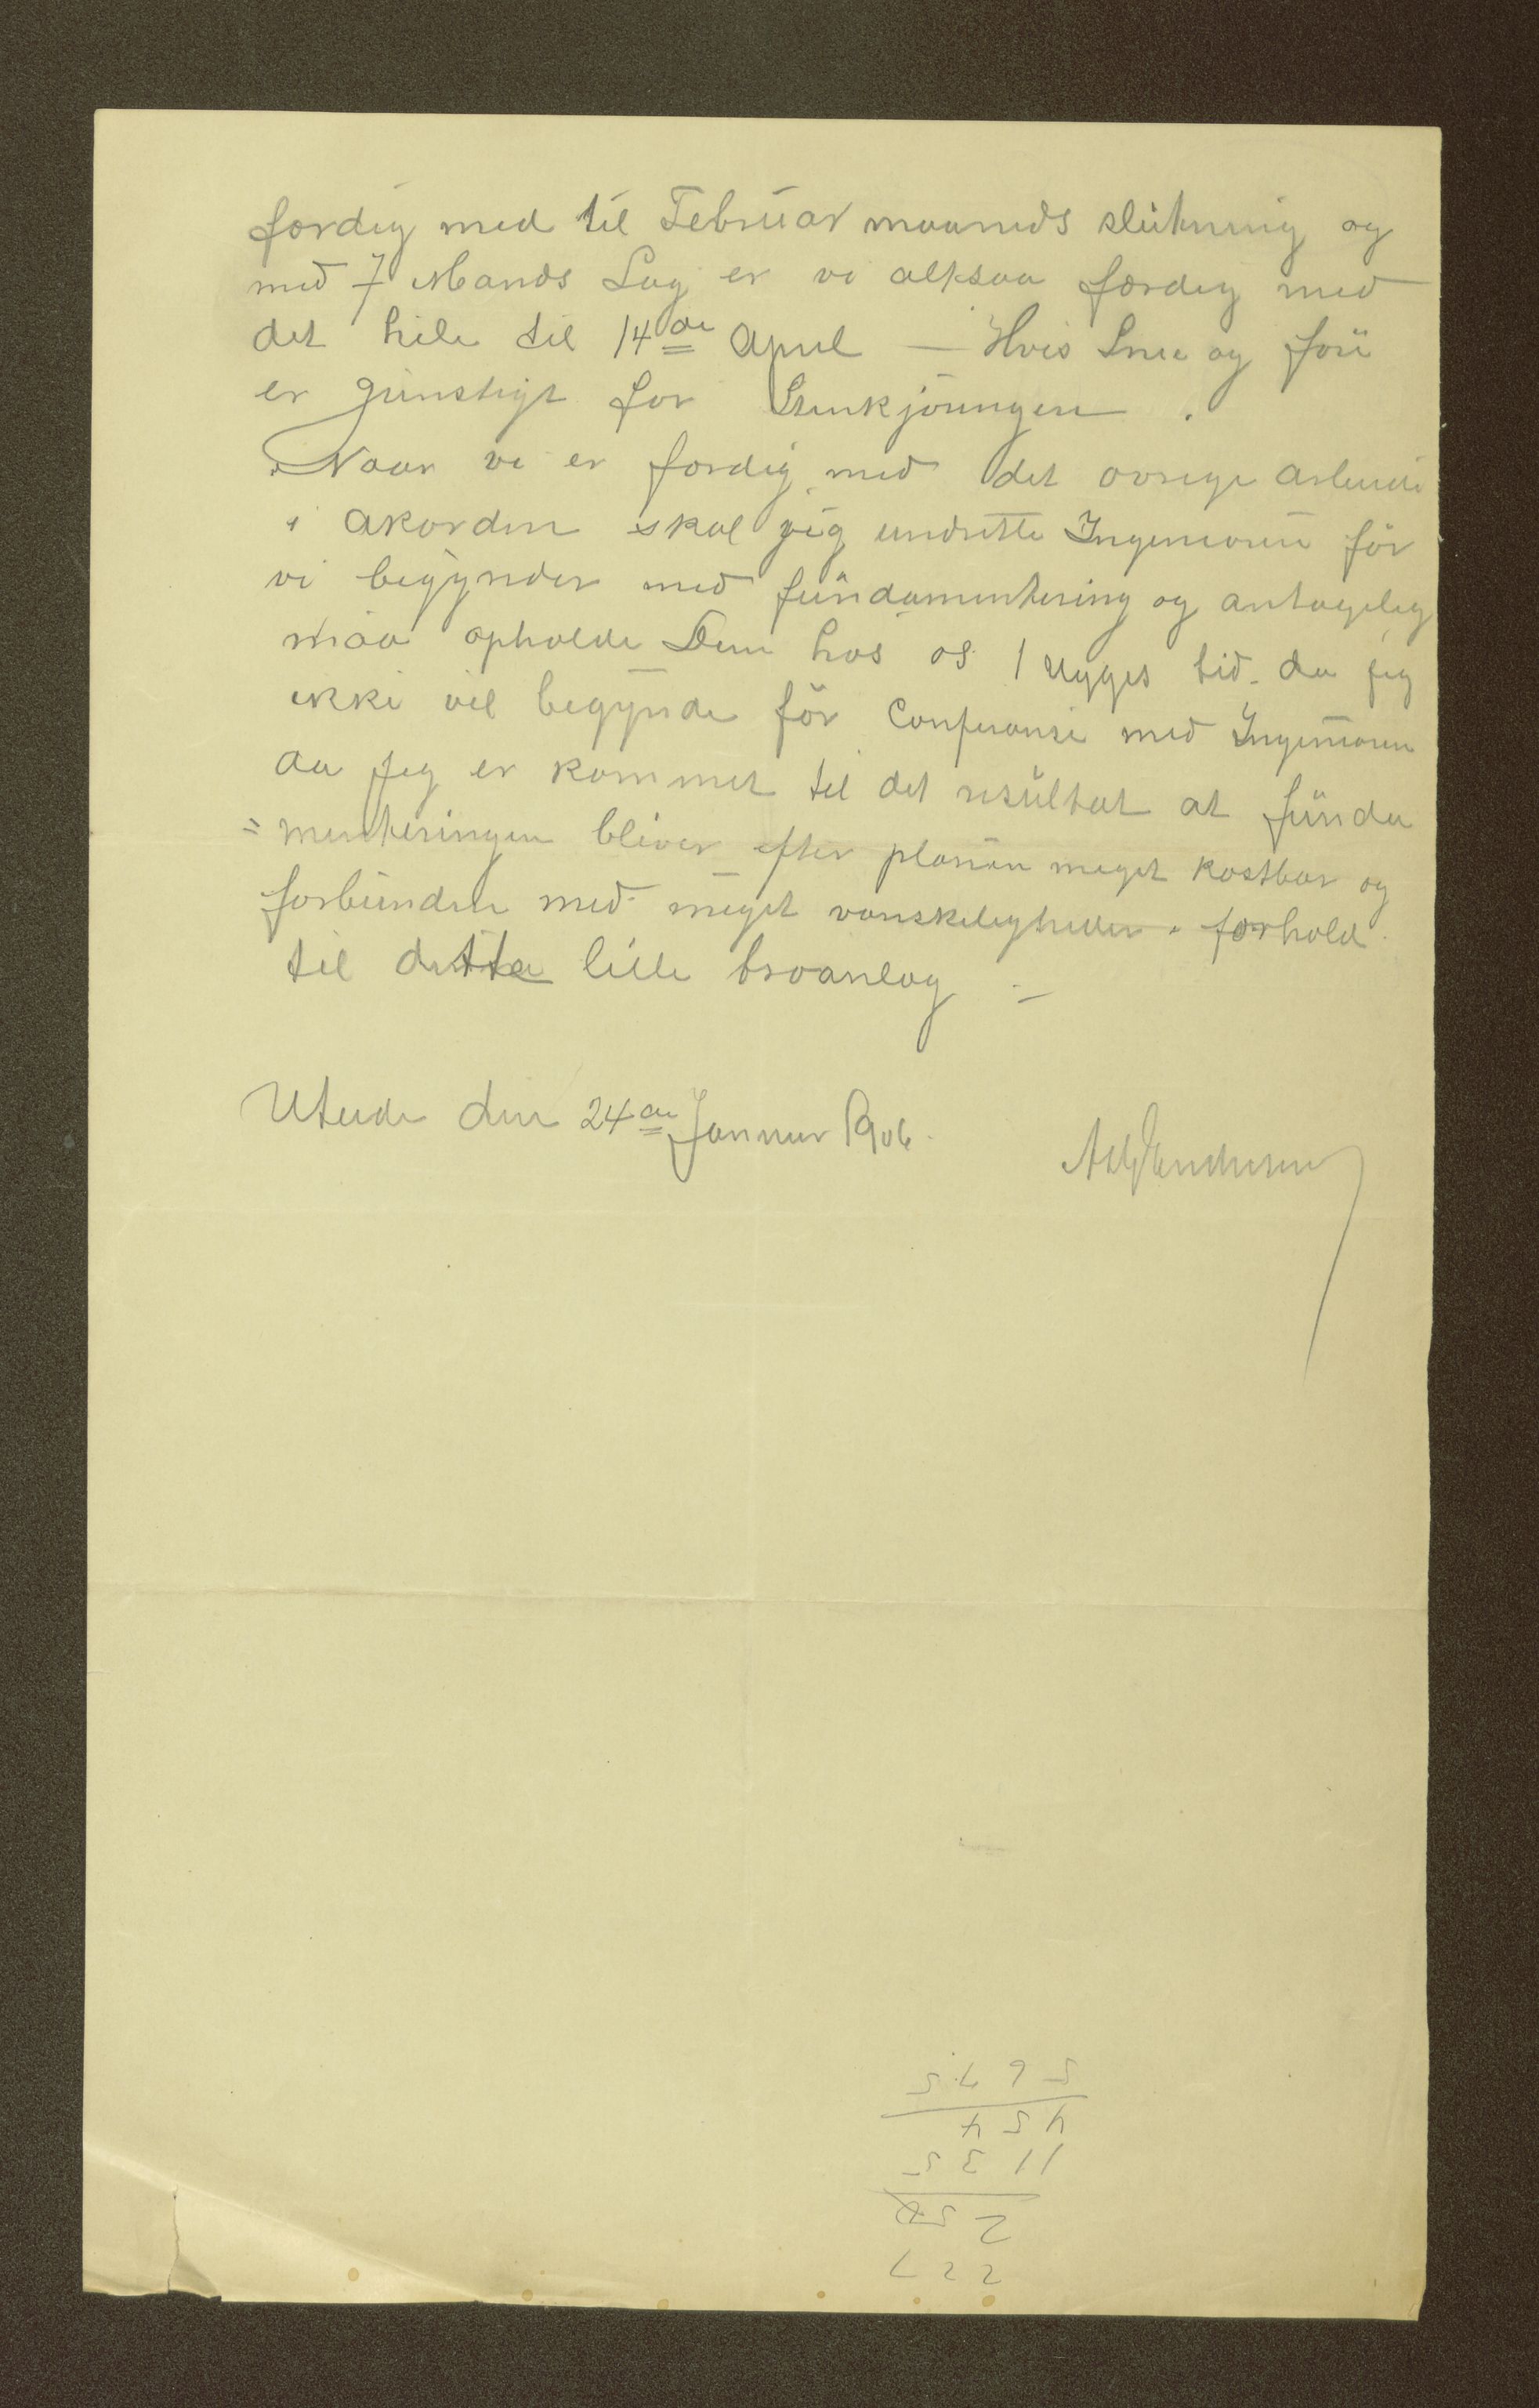 færdig med til Februar maaneds slutning og
med 7 Mands Lag er vi altsaa færdig med
det hele til 14de April — Hvis Snee og före
er gunstigt for Stenkjöringen .
Naar vi er færdig med det øvrige arbeide
i akorden skal jeg undrette Ingeniøren för
vi begynder med fundamentering og antagelig
maa opholde Dem hos os 1 Ugges tid. da jeg
ikke vil begynde för Conferanse med Ingeniøren
da jeg er kommet til det resultat at funda
= menteringen bliver efter planen meget kostbar og
forbunden med meget vanskeligheder i forhold
til dette lille broanlæg –
den 24de Januar 1906.
227
25
1135
454
5675